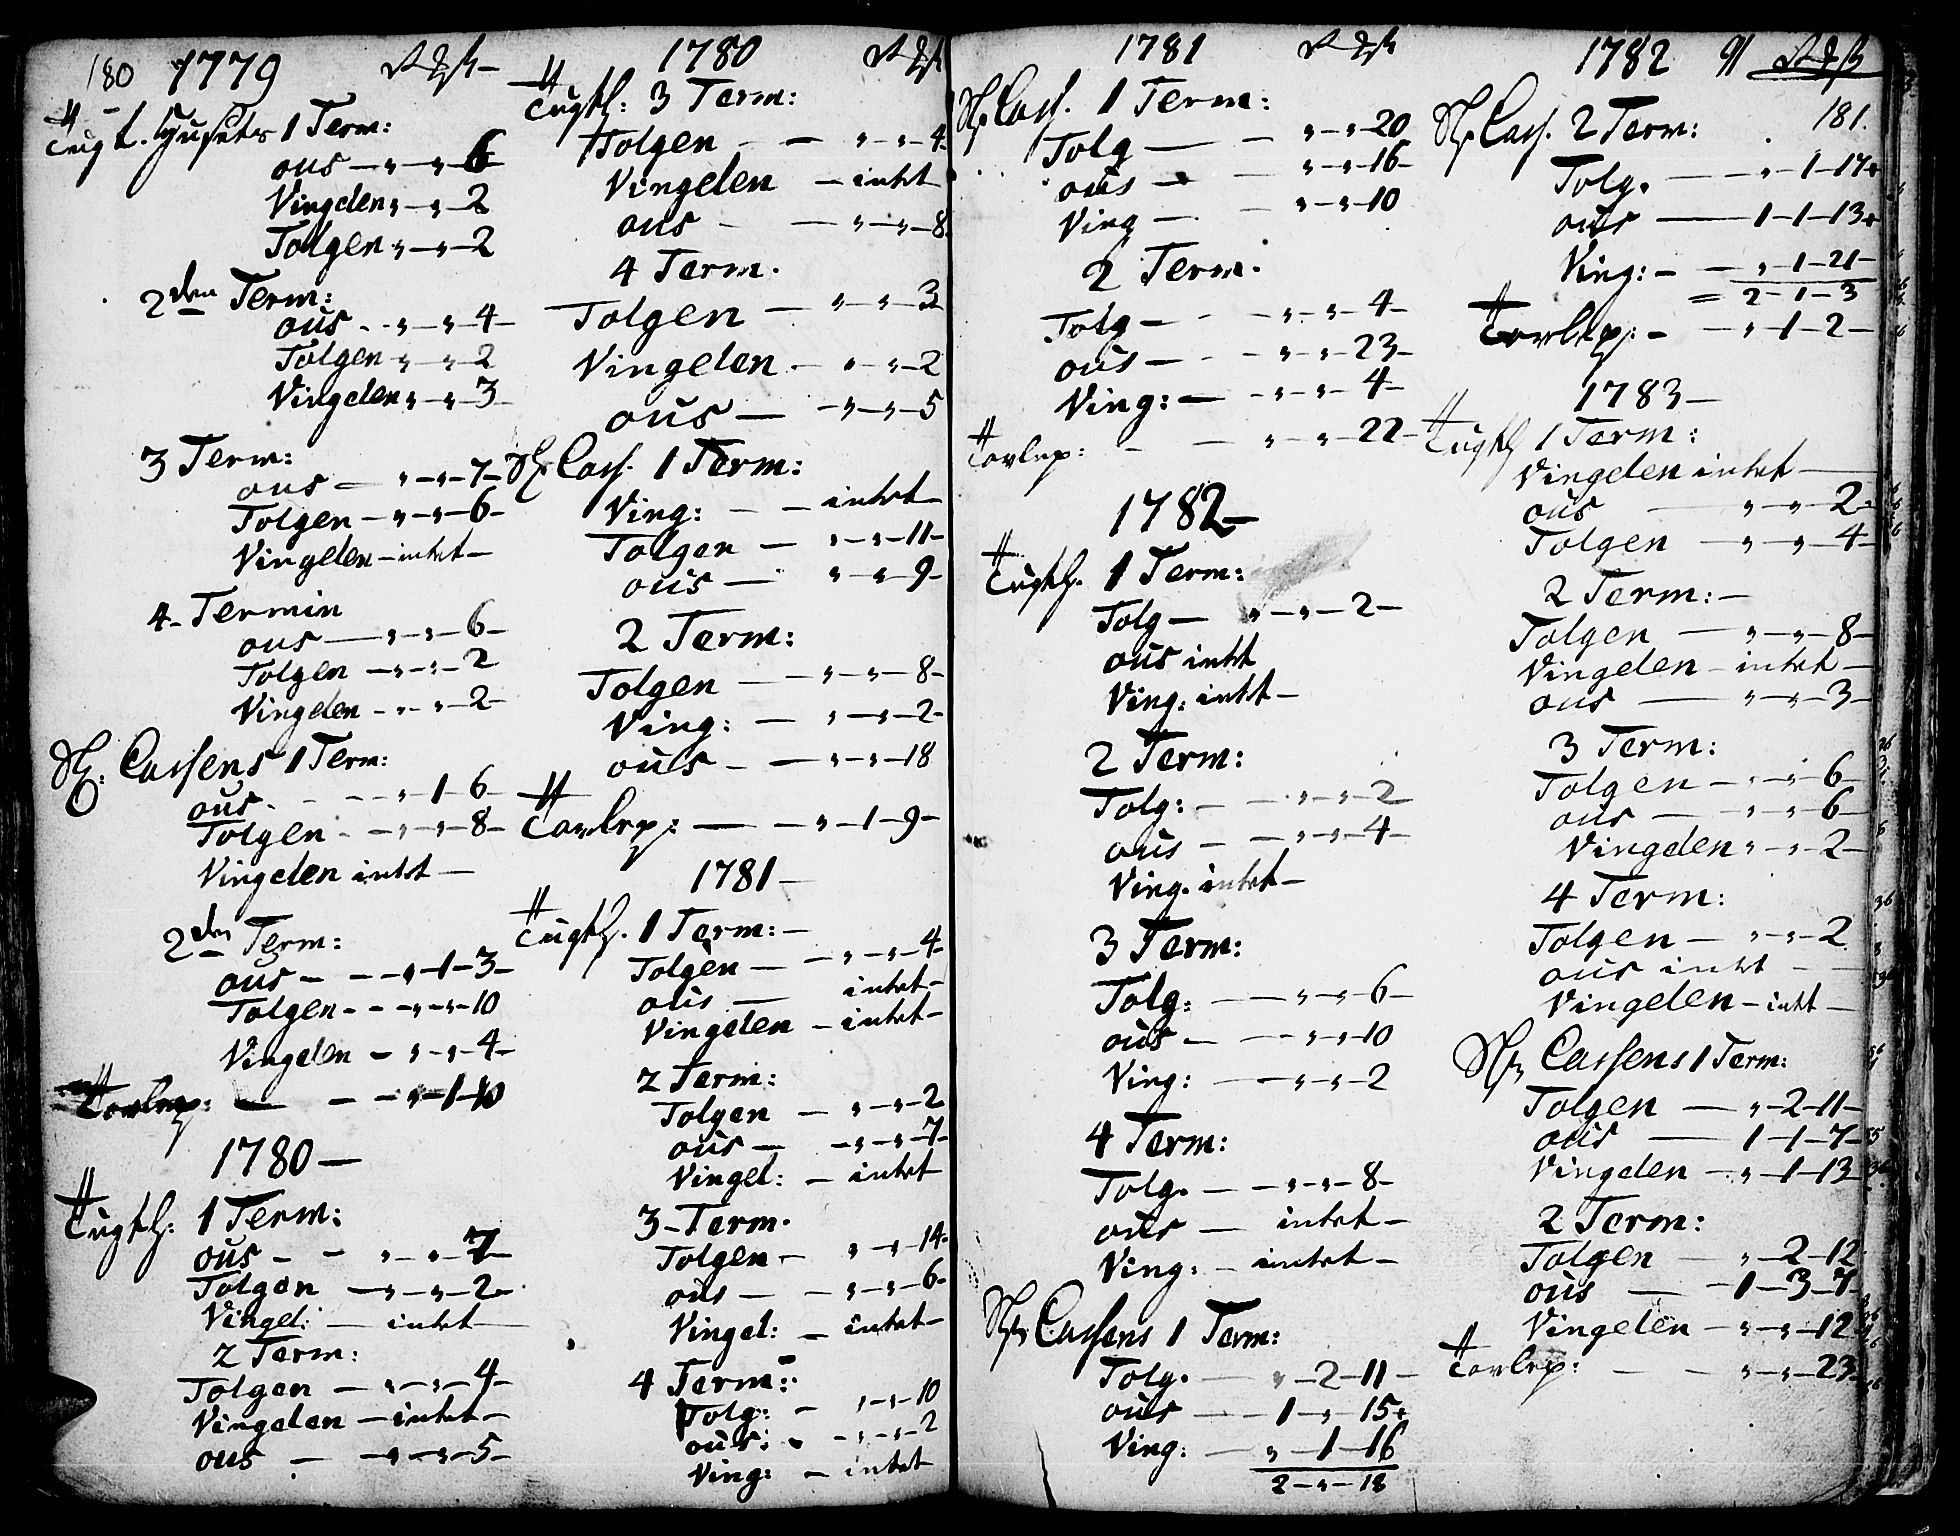 180 1779
Tugt. Husets 1 Term:
ous — „ — „ — 6
Vingelen „ — „ — 2
Tolgen „ — „ — 2
2den Term:
oüs - - „ — „ — 4 —
Tolgen — „ — „ — 2
Vingelen „ — „ — 3
3 Term:
ous — „ — „ — 7 —
Tolgen — „ — „ — 6 —
Vingelen — intet —
4 - Termin
ous — „ — „ — 6 —
Tolgen — „ — „ — 2
Vingelen - „ — „ — 2 —
Cassens 1 Term:
oüs - - — „ — 1 — 6 —
Tolgen - — „ — „ — 8 —
Vingelen intet —
2den Term:
oüs — — „ — 1 — 3 —
Tolgen - - „ — „ — 10
Vingelen — „ — „ — 4 —
— — „ — 1 — 10
1780 —
Tugth: 1 Term:
oüs - — „ — „ — 7 —
Tolgen — „ — „ — 2 —
Vingel: — intet —
2 Term:
Tolgen — „ — „ — 4 —
Vingelen — intet —
ous — „ — „ — 5 —
1780
Tugth: 3 Term:
Tolgen — — „ — „ — 4 —
Vingelen — intet
ous - — „ — „ — 8
4 Term.
Tolgen — „ — „ — 3
Vingelen — „ — „ — 2
oüs — „ — „ — 5
Cass. 1 Term:
Ving: — — intet —
Tolgen — „ — „ — 11 —
oüs — „ — „ — 9 —
2 Term:
Tolgen — „ — „ — 8 —
Ving: — „ — „ — 2 —
oüs — — „ — „ — 18
— — „ — 1 — 9 —
1781 —
Tugth. 1 Term: —
Tolgen — „ — „ — 4 —
oüs — intet —
Vingelen — intet —
2 Term:
Tolgen — „ — „ — 2
oüs — „ — „ — 7 —
Vingel: — intet
3 - Term.
Tolgen — „ — „ — 14 —
oüs — „ — „ — 6 —
Vingel: — intet —
4 Term:
Tolg: — „ — „ — 10
oüs: — „ — „ — 2
Ving: — intet
1781
Cass. 1 Term:
Tolg — — „ — „ — 20
oüs — „ — „ — 16 —
Ving — — „ — „ — 10
2 Term.
Tolg — - „ — „ — 4 —
oüs — - „ — „ — 23 —
Ving: — „ — „ — 4 —
— — „ — „ — 22 —
1782 —
Tugth. 1 Term:
Tolg — „ — „ — 2 —
oüs intet
Ving: intet —
2 Term:
Tolg: — „ — „ — 2
oüs — „ — „ — 4 —
Ving. intet —
3 Term:
Tolg: — „ — „ — 6 —
oüs — „ — „ — 10
Ving: — „ — „ — 2
4 Term:
Tolg. — „ — „ — 8 —
oüs — intet —
Ving: — intet —
Cassens 1 Term:
Tolg. — „ — 2 — 11 —
oüs — 1 — „ — 15 +
Ving: — „ — 1 — 16
2 — „ — 18
1782
181.
Cass. 2 Term:
Tolg. — „ — 1 — 17 +
oüs — 1 — 1 — 13 +
Ving: — „ — 1 — 21 —
= 2 — 1 — 3
— „ — 1 — 2 —
1783 —
Tugth 1 Term:
Vingelen intet —
oüs — „ — „ — 2 —
Tolgen — „ — „ — 4 —
2 Term: —
Tolgen — „ — „ — 8 —
Vingelen — intet —
oüs — „ — „ — 3 —
3 Term:
Tolgen — „ — „ — 6 —
oüs — „ — „ — 6 —
Vingelen „ — „ — 2 —
4 Term:
Tolgen — „ — „ — 2
oüs intet —
Vingelen — intet —
Cassens 1 Term:
Tolgen — „ — 2 — 11 —
oüs — 1 — 1 — 7 —
Vingelen — „ — 1 — 13
2 Term:
Tolgen — „ — 2 — 12
oüs — 1 — 3 — 7 —
Vingelen — „ — „ — 12
— — „ — „ — 23